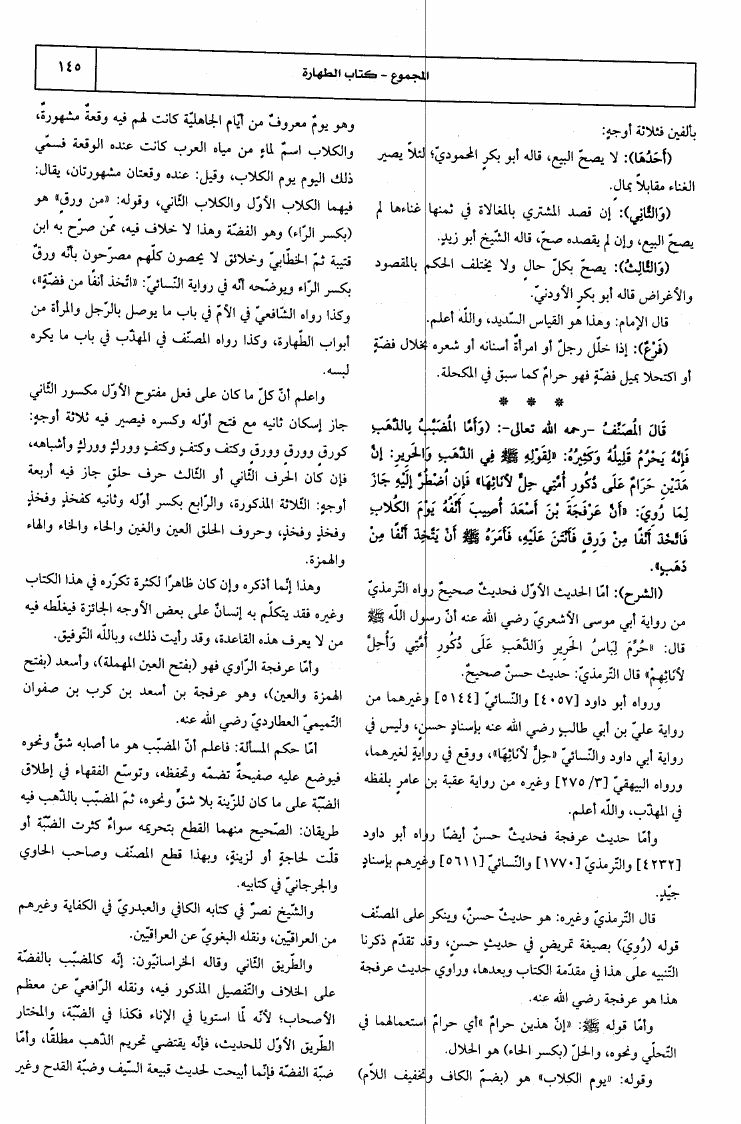 المجموع - كتاب الطهارة
١٤٥
بألفين فثلاثة أوجهٍ:
(أَحَدُهَا): لا يصحّ البيع، قاله أبو بكرٍ المحموديّ؛ لئلاّ يصير
الغناء مقابلاً بمالٍ.
(وَالثَّانِي): إن قصد المشتري بالمغالاة في ثمنها غناءها لم
يصحّ البيع، وإن لم يقصده صحّ، قاله الشّيخ أبو زيدٍ.
(وَالثَّالِثُ): يصحّ بكلّ حالٍ ولا يختلف الحكم بالمقصود
والأغراض قاله أبو بكرٍ الأودنيّ.
قال الإمام: وهذا هو القياس السّديد، واللّه أعلم.
(فَرْعٌ): إذا خلّل رجلٌ أو امرأةٌ أسنانه أو شعره بخلال فضّةٍ
أو اكتحلا بميل فضّةٍ فهو حرامٌ كما سبق في المكحلة.
* * *
قَالَ المُصَنِّفُ -رحمه الله تعالى-: (وَأَمَّا المُضَبَّبُ بِالذَّهَبِ
فَإِنَّهُ يَحْرُمُ قَلِيلُهُ وَكَثِيرُهُ: «لِقَوْلِهِ ﷺ فِي الذَّهَبِ وَالحَرِيرِ: إنَّ
هَذَيْنِ حَرَامٌ عَلَى ذُكُورِ أُمَّتِي حِلٌّ لأنَاثِهَا» فَإِن اُضْطُرَّ إلَيْهِ جَازَ
لِمَا رُوِيَ: «أَنَّ عَرْفَجَةَ بْنَ أَسْعَدَ أُصِيبَ أَنْفُهُ يَوْمَ الكُلاَبِ
فَاتَّخَذَ أَنْفًا مِنْ وَرِقٍ فَأَنْتَنَ عَلَيْهِ، فَأَمَرَهُ ﷺ أَنْ يَتَّخِذَ أَنْفًا مِنْ
ذَهَبٍ»).
(الشرح): أمّا الحديث الأوّل فحديثٌ صحيحٌ رواه التّرمذيّ
من رواية أبي موسى الأشعريّ رضي الله عنه أنّ رسول اللّه ﷺ
قال: «حُرِّمَ لِبَاسُ الحَرِيرِ وَالذَّهَبِ عَلَى ذُكُورِ أُمَّتِي وَأُحِلَّ
لأنَاثِهِمْ» قال التّرمذيّ: حديث حسنٌ صحيحٌ.
ورواه أبو داود [٤٠٥٧] والنّسائيّ [٥١٤٤] وغيرهما من
رواية عليّ بن أبي طالبٍ رضي الله عنه بإسنادٍ حسنٍ، وليس في
رواية أبي داود والنّسائيّ «حِلٌّ لأنَاثِهَا»، ووقع في روايةٍ لغيرهما،
ورواه البيهقيّ [٣/ ٢٧٥] وغيره من رواية عقبة بن عامرٍ بلفظه
في المهذّب، واللّه أعلم.
وأمّا حديث عرفجة فحديثٌ حسنٌ أيضًا رواه أبو داود
[٤٢٣٢] والتّرمذيّ [١٧٧٠] والنّسائيّ [٥٦١١] وغيرهم بإسنادٍ
جيّدٍ.
قال التّرمذيّ وغيره: هو حديثٌ حسنٌ، وينكر على المصنّف
قوله (رُوِيَ) بصيغة تمريض في حديثٍ حسنٍ، وقد تقدّم ذكرنا
التّنبيه على هذا في مقدّمة الكتاب وبعدها، وراوي حديث عرفجة
هذا هو عرفجة رضي الله عنه.
وأمّا قوله ﷺ: «إنّ هذين حرامٌ» أي حرامٌ استعمالهما في
التّحلّي ونحوه، والحلّ (بكسر الحاء) هو الحلال.
وقوله: «يوم الكلاب» هو (بضمّ الكاف وتخفيف اللاّم)
وهو يومٌ معروفٌ من أيّام الجاهليّة كانت لهم فيه وقعةٌ مشهورةٌ،
والكلاب اسمٌ لماءٍ من مياه العرب كانت عنده الوقعة فسمّي
ذلك اليوم يوم الكلاب، وقيل: عنده وقعتان مشهورتان، يقال:
فيهما الكلاب الأوّل والكلاب الثّاني، وقوله: «من ورقٍ» هو
(بكسر الرّاء) وهو الفضّة وهذا لا خلاف فيه، ممّن صرّح به ابن
قتيبة ثمّ الخطّابيّ وخلائق لا يحصون كلّهم مصرّحون بأنّه ورقٌ
بكسر الرّاء ويوضّحه أنّه في رواية النّسائيّ: «اتّخذ أنفًا من فضّةٍ»،
وكذا رواه الشّافعيّ في الأمّ في باب ما يوصل بالرّجل والمرأة من
أبواب الطّهارة، وكذا رواه المصنّف في المهذّب في باب ما يكره
لبسه.
واعلم أنّ كلّ ما كان على فعل مفتوح الأوّل مكسور الثّاني
جاز إسكان ثانيه مع فتح أوّله وكسره فيصير فيه ثلاثة أوجهٍ:
كورقٍ وورقٍ وورقٍ وكتف وكتفٍ وكتفٍ ووركٍ ووركٍ ووركٍ وأشباهه،
فإن كان الحرف الثّاني أو الثّالث حرف حلقٍ جاز فيه أربعة
أوجهٍ: الثّلاثة المذكورة، والرّابع بكسر أوّله وثانيه كفخذٍ وفخذٍ
وفخذٍ وفخذٍ، وحروف الحلق العين والغين والحاء والخاء والهاء
والهمزة.
وهذا إنّما أذكره وإن كان ظاهرًا لكثرة تكرّره في هذا الكتاب
وغيره فقد يتكلّم به إنسانٌ على بعض الأوجه الجائزة فيغلّطه فيه
من لا يعرف هذه القاعدة، وقد رأيت ذلك، وباللّه التّوفيق.
وأمّا عرفجة الرّاوي فهو (بفتح العين المهملة)، وأسعد (بفتح
الهمزة والعين)، وهو عرفجة بن أسعد بن كرب بن صفوان
التّميميّ العطارديّ رضي الله عنه.
أمّا حكم المسألة: فاعلم أنّ المضبّب هو ما أصابه شقٌّ ونحوه
فيوضع عليه صفيحةٌ تضمّه وتحفظه، وتوسّع الفقهاء في إطلاق
الضّبّة على ما كان للزّينة بلا شقٍّ ونحوه، ثمّ المضبّب بالذّهب فيه
طريقان: الصّحيح منهما القطع بتحريمه سواءٌ كثرت الضّبّة أو
قلّت لحاجةٍ أو لزينةٍ، وبهذا قطع المصنّف وصاحب الحاوي
والجرجانيّ في كتابيه.
والشّيخ نصرٌ في كتابه الكافي والعبدريّ في الكفاية وغيرهم
من العراقيّين، ونقله البغويّ عن العراقيّين.
والطّريق الثّاني وقاله الخراسانيّون: إنّه كالمضبّب بالفضّة
على الخلاف والتّفصيل المذكور فيه، ونقله الرّافعيّ عن معظم
الأصحاب؛ لأنّه لمّا استويا في الإناء فكذا في الضّبّة، والمختار
الطّريق الأوّل للحديث، فإنّه يقتضي تحريم الذّهب مطلقًا، وأمّا
ضبّة الفضّة فإنّما أبيحت لحديث قبيعة السّيف وضبّة القدح وغير